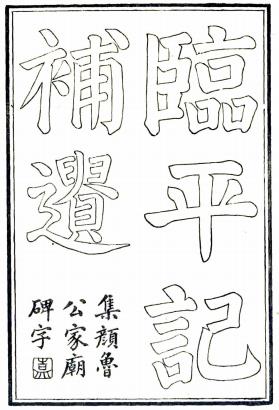 臨平記
補遺
集顏魯
公家廟
碑字